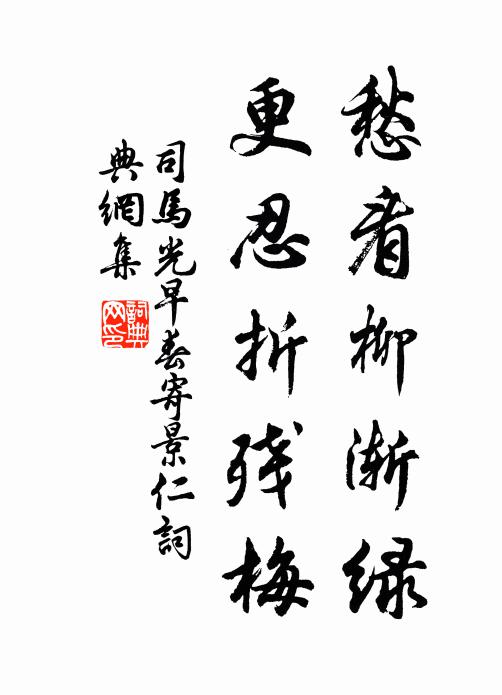 愁看柳渐绿
更忍折残梅
司馬光早春寄景仁詞
典網集
詞典
网印